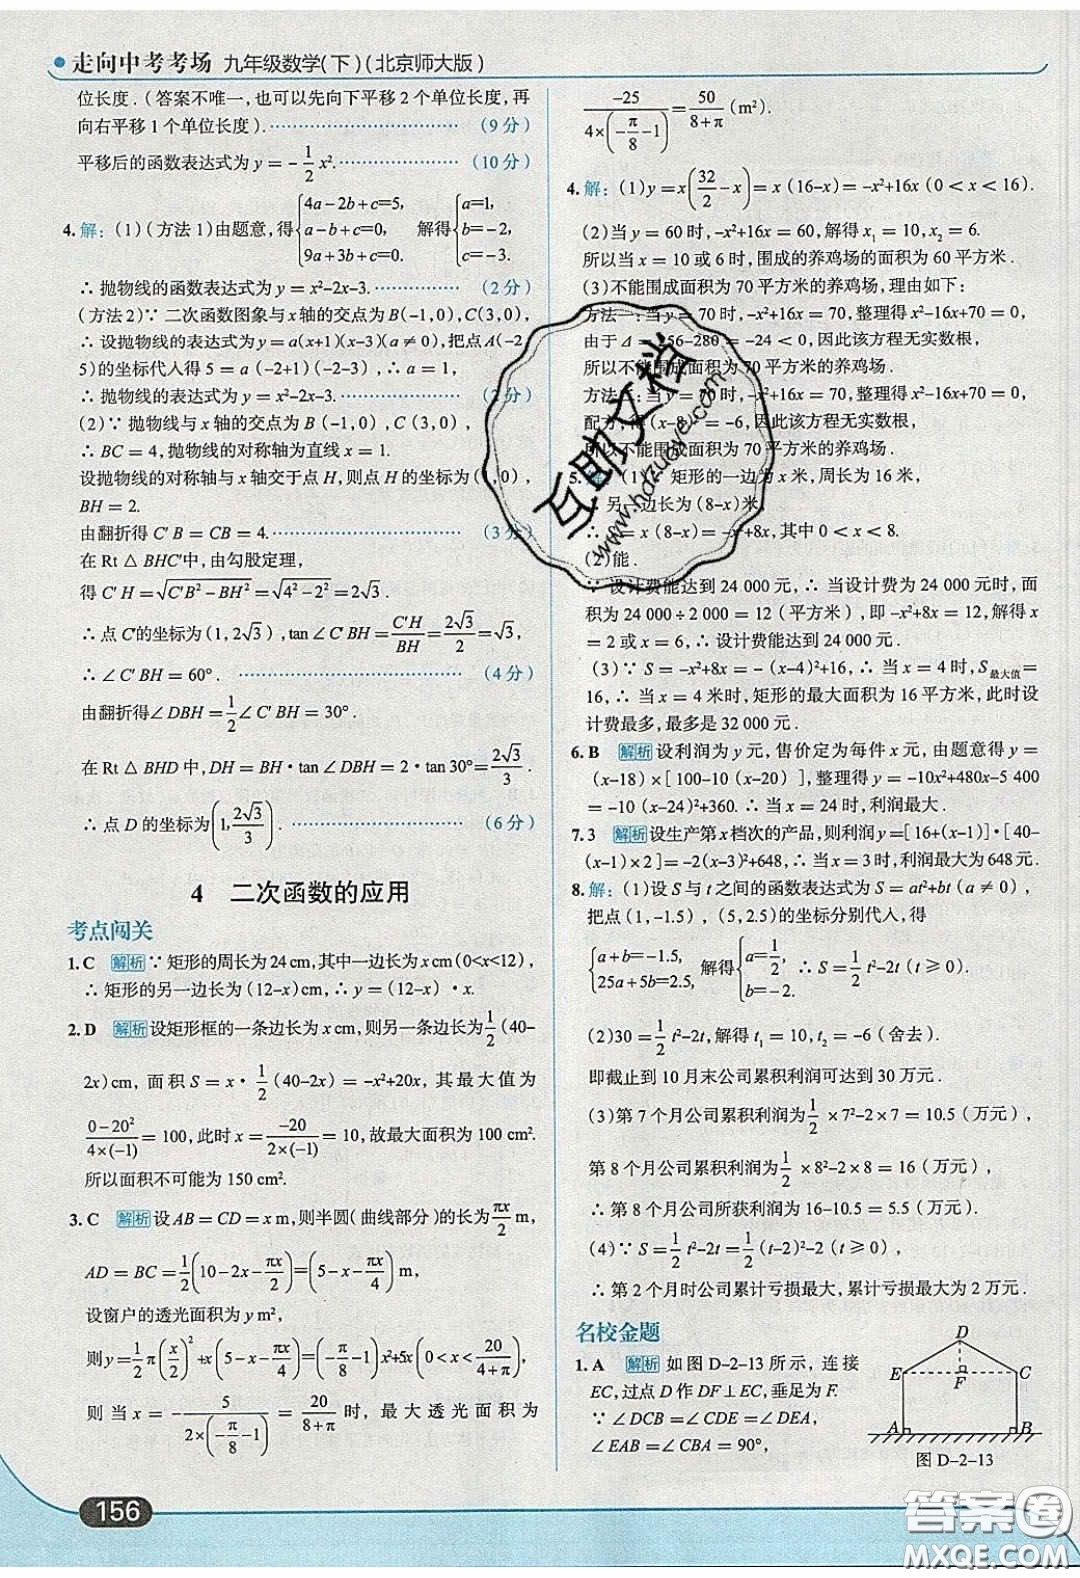 走向中考考场 九年级数学(下)(北京师大版)
位长度.(答案不唯一,也可以先向下平移2个单位长度,再
向右平移1个单位长度).……………………(9分)
平移后的函数表达式为y=-1/2x².……………(10分)
4.解:(1)(方法1)由题意,得{4a-2b+c=5, a-b+c=0, 9a+3b+c=0. 解得{a=1, b=-2, c=-3.
∴抛物线的函数表达式为y=x²-2x-3.…………(2分)
(方法2)∵二次函数图象与x轴的交点为B(-1,0),C(3,0),
∴设抛物线的表达式为a(x+1)(x-3)(a≠0),把点A(-2,
5)的坐标代人得5=a(-2+1)(-2-3),∴a=1,
∴抛物线的表达式为x²-2x-3.……………(2分)
(2)∵抛物线与x轴的交点为B(-1,0),C(3,0),
∴BC=4,抛物线的对称轴为直线x=1.
设抛物线的对称轴与x轴交于点H,则点H的坐标为(1,0),
BH=2.
由翻折得C′B=CB=4.………………………(3分)
在Rt△BHC′中,由勾股定理,
得C′H=√(C′B²-BH²)=√(4²-2²)=2√3.
∴点C′的坐标为(1,2√3),tan∠C′BH=C′H/BH=2√3/2=√3,
∴∠C′BH=60°.……………………………(4分)
由翻折得∠DBH=1/2∠C′BH=30°.
在Rt△BHD中,DH=BH·tan∠DBH=2·tan30°=2√3/3.
∴点D的坐标为(1,2√3/3).………………(6分)
4 二次函数的应用
考点闯关
1.C 解析∵矩形的周长为24cm,其中一边长为xcm(0<x<12),
∴矩形的另一边长为(12-x)cm,∴y=(12-x)·x.
2.D 解析设矩形框的一条边长为xcm,则另一条边长为1/2(40-
2x)cm,面积S=x·1/2(40-2x)=-x²+20x,其最大值为
(0-20²)/(4×(-1))=100,此时x=-20/(2×(-1))=10,故最大面积为100cm².
所以面积不可能为150cm².
3.C 解析设AB=CD=xm,则半圆(曲线部分)的长为πx/2m,
AD=BC=1/2(10-2x-πx/2)=(5-x-πx/4)m,
设窗户的透光面积为ym²,
则y=1/2π(x/2)²+x(5-x-πx/4)=(-π/8-1)x²+5x(0<x<20/(4+π)),
则当x=-5/(2×(-π/8-1))=20/(8+π)时,最大透光面积为
-25/(4×(-π/8-1))=50/(8+π)(m²).
4.解:(1)y=x(32/2-x)=x(16-x)=-x²+16x(0<x<16).
(2)当y=60时,-x²+16x=60,解得x₁=10,x₂=6.
所以当x=10或6时,围成的养鸡场的面积为60平方米.
(3)不能围成面积为70平方米的养鸡场.理由如下:
方法一:当y=70时,-x²+16x=70,整理得x²-16x+70=0,
由于Δ=256-280=-24<0,因此该方程无实数根,
所以不能围成面积为70平方米的养鸡场.
方法二:当y=70时,-x²+16x=70,整理得x²-16x=-70,
配方,得(x-8)²=-6,因此该方程无实数根,
所以不能围成面积为70平方米的养鸡场.
5.解:(1)∵矩形的一边为x米,周长为16米,
∴另一边长为(8-x)米,
∴S=x(8-x)=-x²+8x,其中0<x<8.
(2)能.
∵设计费能达到24000元,∴当设计费为24000元时,面
积为24000÷2000=12(平方米),即-x²+8x=12,解得x
=2或x=6,∴设计费能达到24000元.
(3)∵S=-x²+8x=-(x-4)²+16,∴当x=4时,S最大值=
16,∴当x=4时,矩形的最大面积为16平方米,此时设
计费最多,最多是32000元.
6.B 解析设利润为y元,售价定为每件x元,由题意得y=
(x-18)×[100-10(x-20)],整理得y=-10x²+480x-5400
=-10(x-24)²+360.∴当x=24时,利润最大.
7.3 解析设生产第x档次的产品,则利润y=[16+(x-1)]·[40-
(x-1)×2]=-2(x-3)²+648,∴当x=3时,利润最大为648元.
8.解:(1)设S与t之间的函数表达式为S=at²+bt(a≠0),
把点(1,-1.5),(5,2.5)的坐标分别代人,得
{a+b=-1.5, 25a+5b=2.5, 解得{a=1/2, b=-2. ∴S=1/2t²-2t(t≥0).
(2)30=1/2t²-2t,解得t₁=10,t₂=-6(舍去).
即截止到10月末公司累积利润可达到30万元.
(3)第7个月公司累积利润为1/2×7²-2×7=10.5(万元),
第8个月公司累积利润为1/2×8²-2×8=16(万元),
∴第8个月公司所获利润为16-10.5=5.5(万元).
(4)∵S=1/2t²-2t=1/2(t-2)²-2(t≥0),
∴第2个月时公司累计亏损最大,累计亏损最大为2万元.
名校金题
1.A 解析如图D-2-13所示,连接
EC,过点D作DF⊥EC,垂足为F.
∵∠DCB=∠CDE=∠DEA,
∠EAB=∠CBA=90°,
D
E F C
A B
图D-2-13
互助文档
www.hdzuoye.com
156
答案圈
MXQE.COM